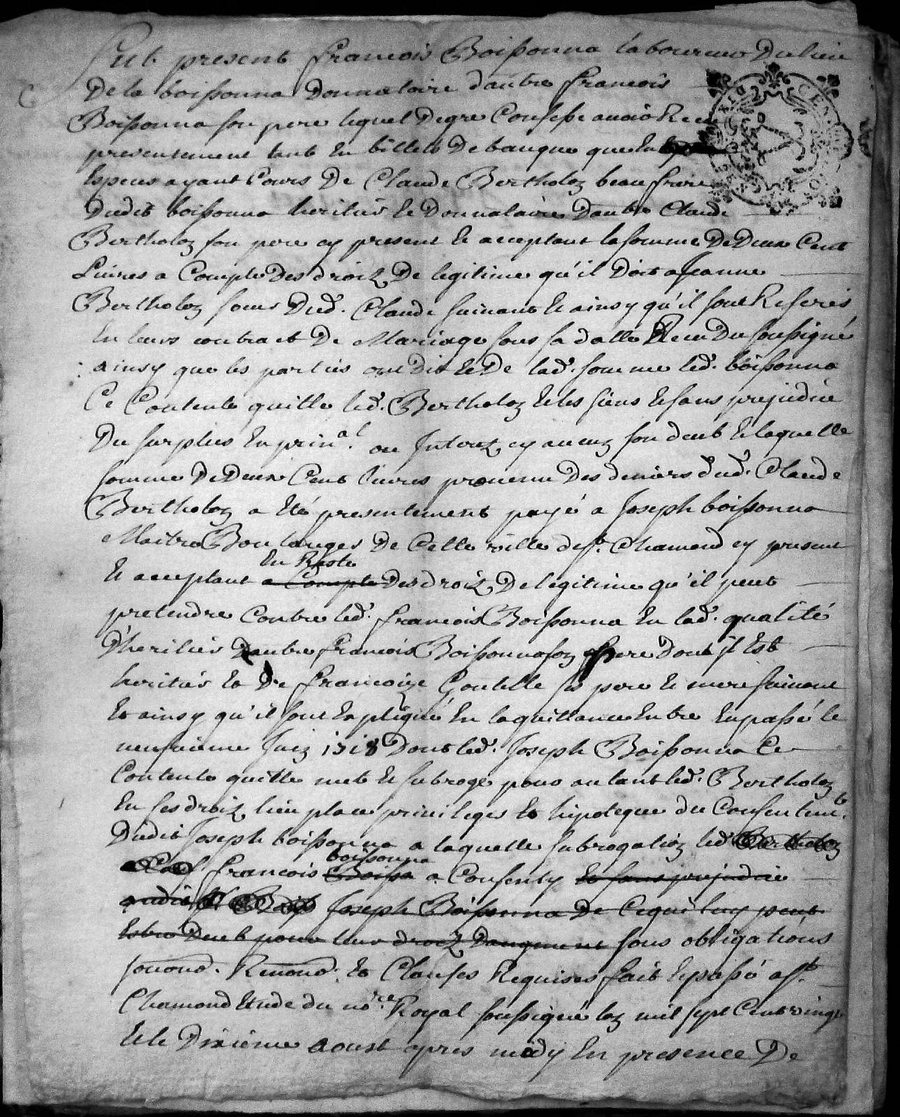 Fut present francois Boissonna laboureur du lieu
De la boissonna Donnataire dautre francois
Boissonna son pere lequel De gre Confesse avoir Receu
presentement tant En billets De banque que En
Especes ayant Cours De Claude Bertholoz beau frere
Dudit boissonna heritier et Donnataire Dautre Claude
Bertholoz son pere cy present et acceptant la somme De Deux Cent
Livres a Compte Des droitz De legitime qu'il Doit a Jeanne
Bertholoz soeur Dud. Claude suivant et ainsy qu'il sont Referés
En leurs contract De Mariage sous sa datte Receu Du soussigné
ainsy que les parties ont Dit et De lad. somme led. boissonna
Ce Contente quitte led. Bertholoz et les siens et sans prejudice
Du surplus En prinal ou Interez cy aucuns son deub Et laquelle
somme De Deux Cent Livres provenue Des deniers dud. Claude
Bertholoz a Eté presentement payé a Joseph boissonna
Maitre Boulanger De Cette ville de St. Chamond cy present
En Reste
Et acceptant a Compte Des droitz De legitime qu'il peut
pretendre Contre led. francois Boissonna En lad. qualité
D'heritier Dautre francois Boissonna son pere Dont il Est
heritier Et De francoize Goutelle ses pere Et mere suivant
Et ainsy qu'il sont Expliqué En la quittance Entre Eux passé le
neufvieme Juin 1718 Dont led. Joseph Boissonna Ce
Contente quitte met Et subroge pour autant led. Bertholoz
En ses droitz lieu place privileges Et hipoteque du Consentemt.
Dudit Joseph boissonna a laquelle subrogation led. Bertholoz
boissonna
francois Boissa a Consenty Et sans prejudice
audit Joseph Boissonna De Ce qui luy peut
Estre Deub pour leur droitz Daugment sous obligations
soumond. Renond. Et Clauses Requises fait Et passé a St.
Chamond Etude du nore Royal soussigné Lan mil sept Cent vingt
Et le Dixieme aoust apres midy En presence De